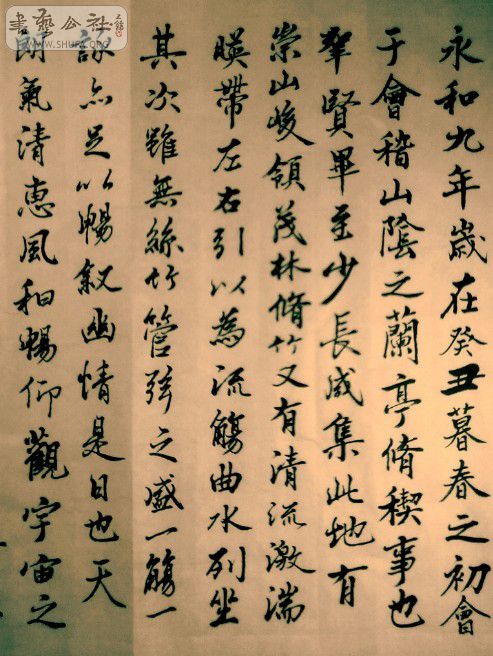 永和九年歲在癸丑暮春之初會
于會稽山陰之蘭亭脩稧事也
羣賢畢至少長咸集此地有
崇山峻領茂林脩竹又有清流激湍
暎帶左右引以為流觴曲水列坐
其次雖無絲竹管弦之盛一觴一
詠亦足以暢叙幽情是日也天
朗氣清惠風和暢仰觀宇宙之
書藝公社
WWW.SHUFA.ORG